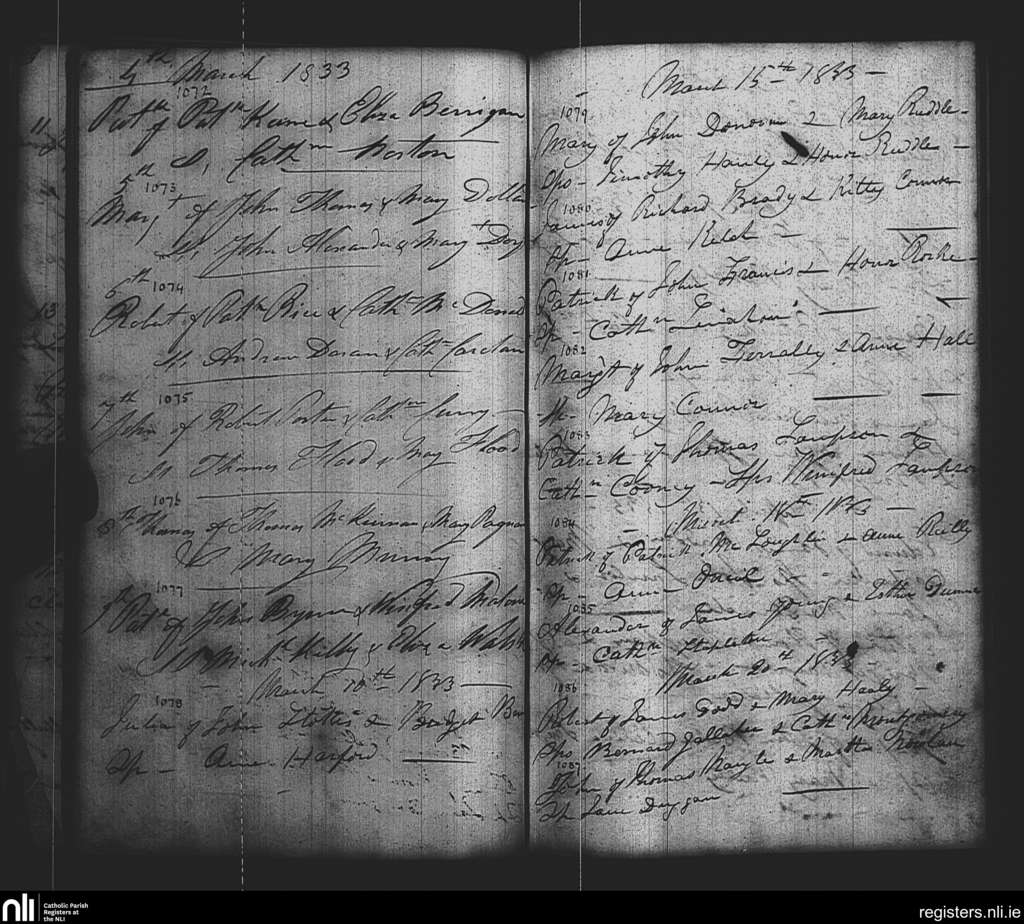 4th March 1833
1072
Patk of Patk Keane & Eliza Berrigan
S, Cathn Norton
5th 1073
Margt of John Thomas & Mary Dollan
S, John Alexander & Margt Doy
6th 1074
Robert of Patk Rice & Cathn Mc Donnal
S, Andrew Doran & Cathn Carolan
7th 1075
John of Robert & Cathn Curry
St Thomas Flood & May Flood
1076
8th Thomas of Thomas McKiernan & Mary Pagnam
S Mary Murray
1077
9th Patk of John Byrne & Winifred Malone
Sp Michl Kelly & Eliza Walsh
March 10th 1833
1078
Julia of John & Bridget
Sp - Anne Harford
March 15th 1833
1079
Mary of John Donovan & Mary Ruddle
Sps - Timothy Hanly & Honor Ruddle
1080
James of Richard Brady & Kitty Connor
Sp - Anne Kelch
1081
Patrick of John Francis & Honor Rorke
Sp - Cathn
1082
Margt of John Ferrally & Anne Hall
Sp - Mary Connor
1083
Patrick of Thomas Lampson &
Cathn Cooney - Sps Winifred Lampson
March 18th 1833
1084
Patrick of Patrick Mc Loughlin & Anne Reilly
Sp - Anne
1085
Alexander of James Young & Esther Dunne
Sp - Cathn Stapleton
March 20th 1833
1086
Robert of James Dodd & Mary Hanly
Sps Bernard Gallaher & Cathn Montgomery
1087
John of Thomas & Martha Nowlan
Sp Jane Duggan
nli
Catholic Parish
Registers at
the NLI
registers.nli.ie